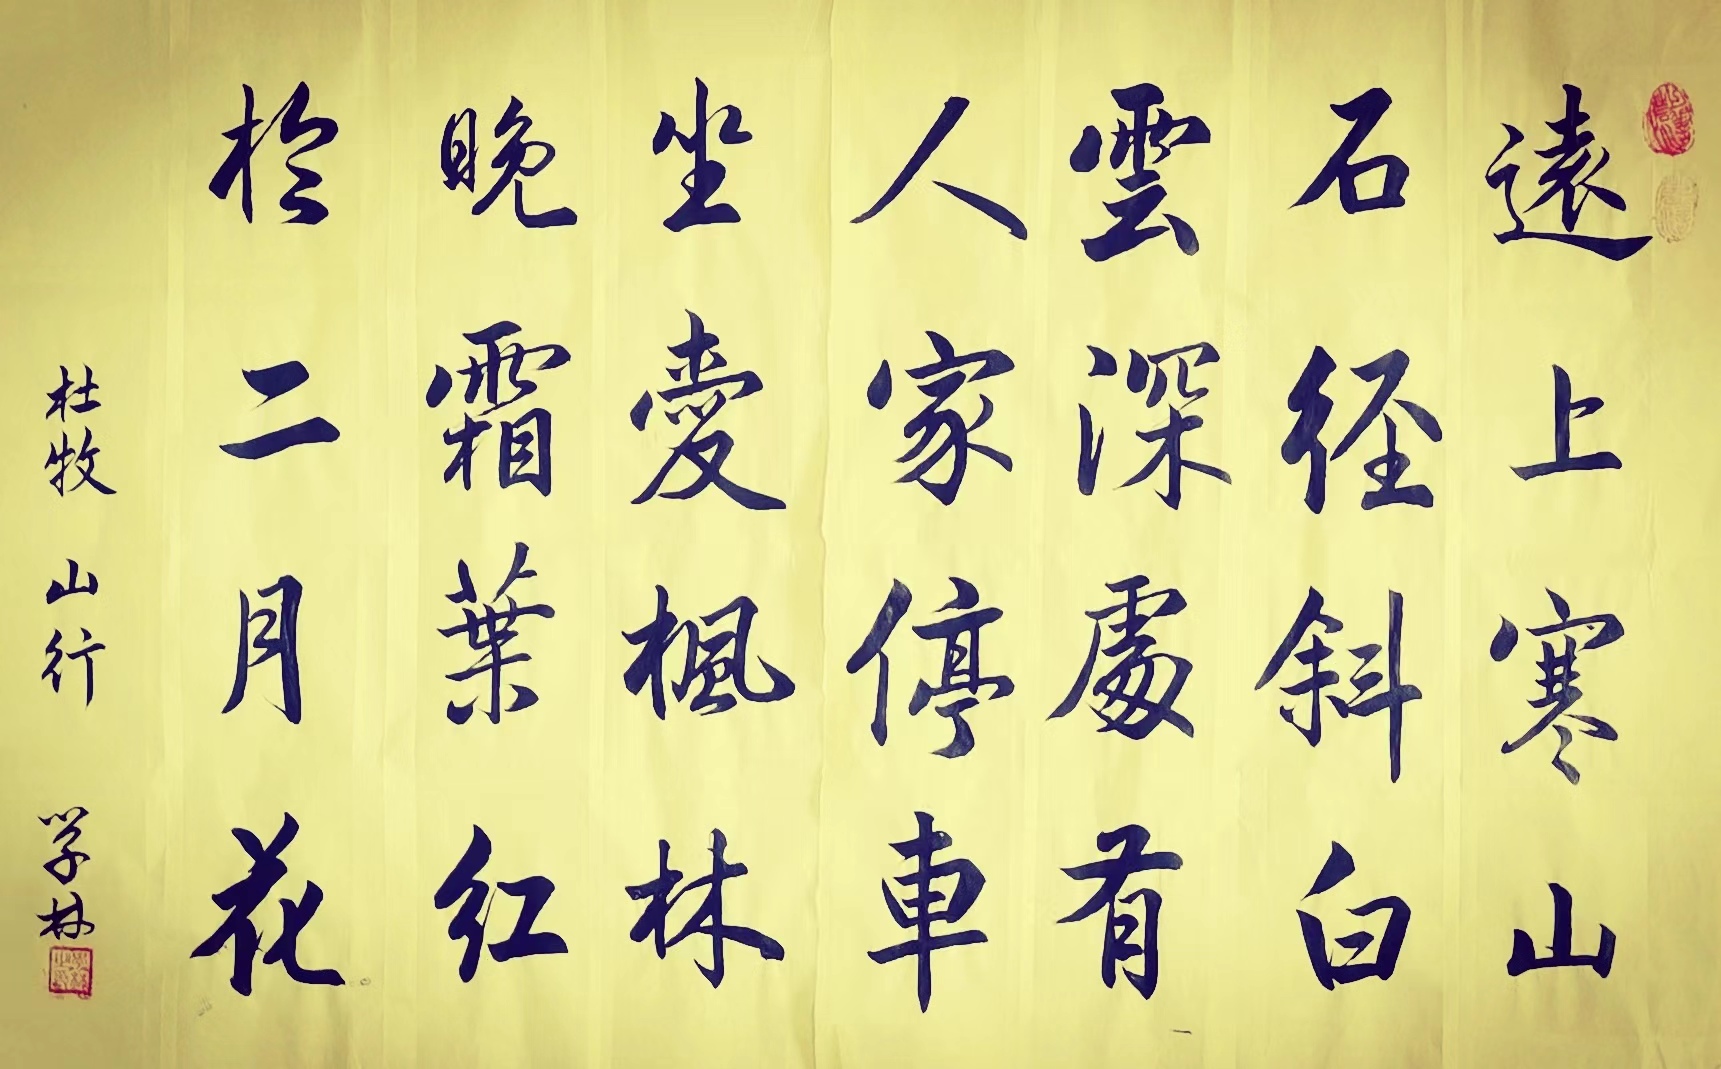 遠上寒山
石径斜白
雲深處有
人家停車
坐愛楓林
晚霜葉紅
於二月花
杜牧 山行 学林